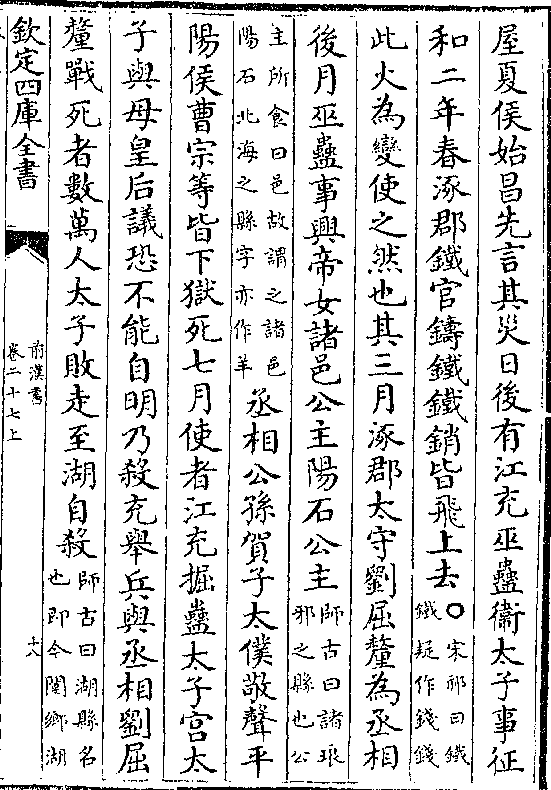 屋夏侯始昌先言其災日後有江充巫蠱衛太子事征
和二年春涿郡鐵官鑄鐵鐵銷皆飛上去○宋祁曰鐵鐵疑作錢錢
此火為變使之然也其三月涿郡太守劉屈釐為丞相
後月巫蠱事興帝女諸邑公主陽石公主師古曰諸琅邪之縣也公
主所食曰邑故謂之諸邑陽石北海之縣字亦作羊丞相公孫賀子太僕敬聲平
陽侯曹宗等皆下獄死七月使者江充掘蠱太子宮太
子與母皇后議恐不能自明乃殺充舉兵與丞相劉屈
釐戰死者數萬人太子敗走至湖自殺師古曰湖縣名也即今閿鄉湖
欽定四庫全書
前漢書
卷二十七上
十八